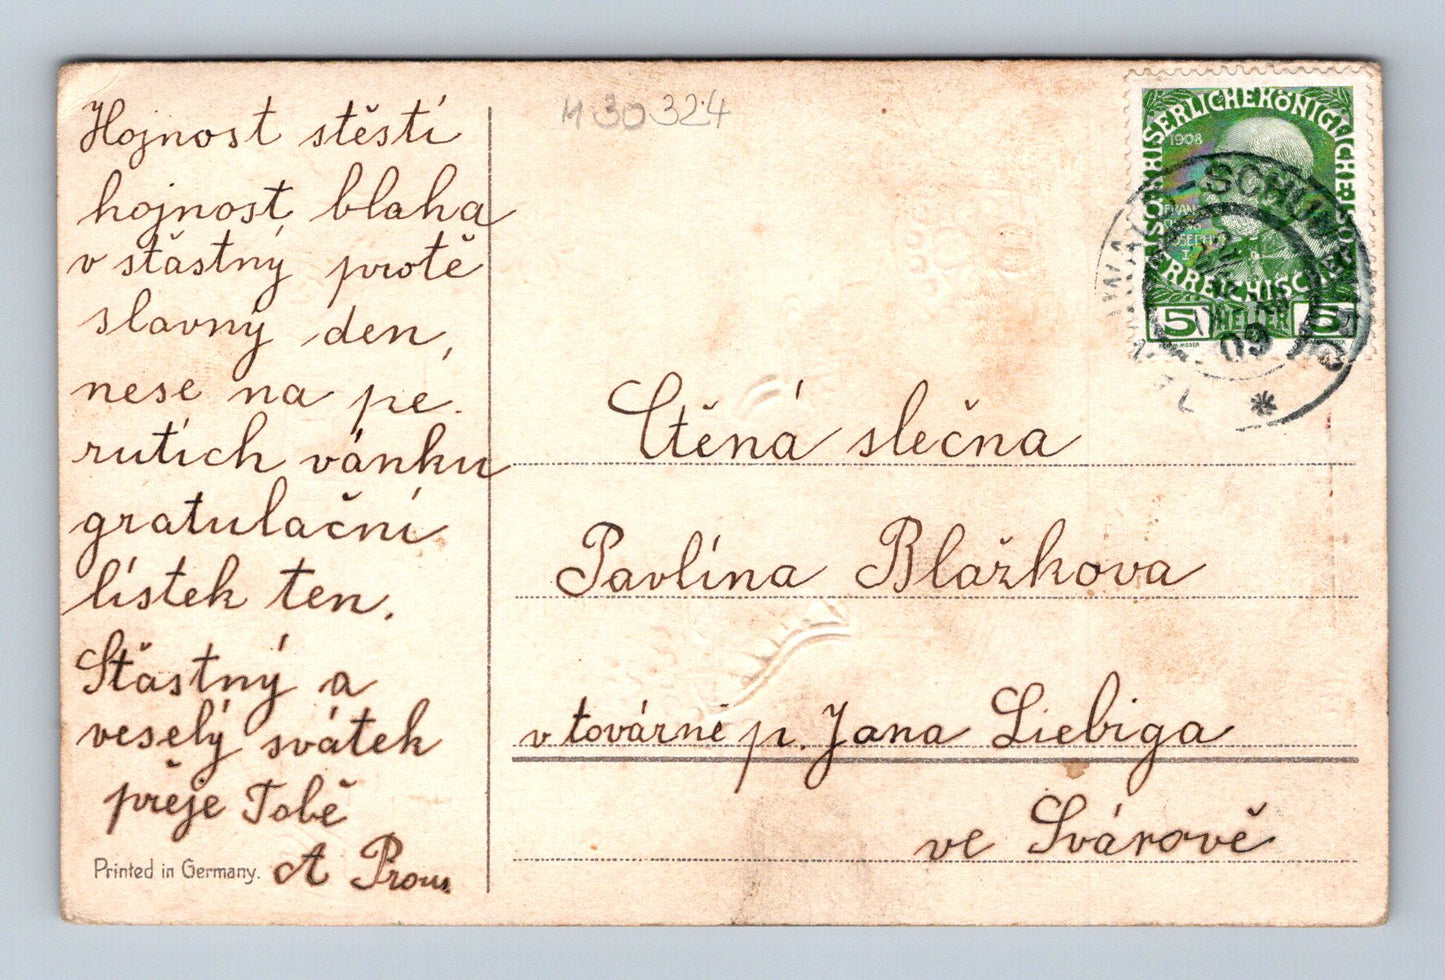 Hojnost stěstí
hojnost blaha
v šťastný protě
slavný den,
nese na pe.
rutích vánku
gratulační
lístek ten.
Šťastný a
veselý svátek
přeje Tobě
A Prom
Printed in Germany.
M 30324
KAISERLICHEKÖNIGLICHE ÖSTERREICHISCHE
1908
5 HELLER 5
SCHUM
09
Ctěná slečna
Pavlína Blažkova
v továrně p. Jana Liebiga
ve Svárově